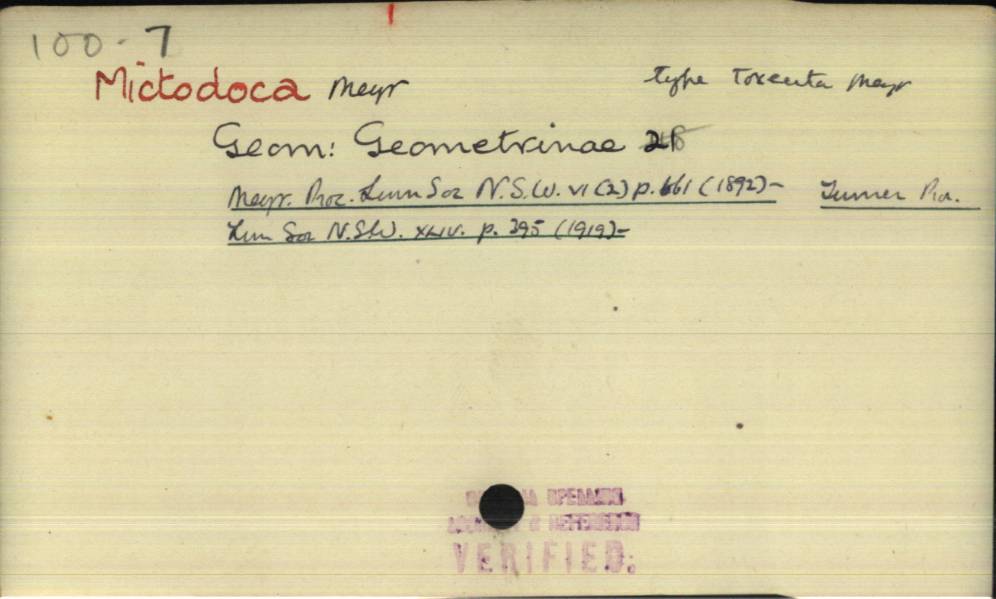 100-7
Mictodoca Meyr type toxeuta Meyr
Geom: Geometrinae
Meyr. Proc. Linn Soc N.S.W. VI (2) p. 661 (1892)- Turner Proc.
Linn Soc N.S.W. XLIV. p. 395 (1919)-
SPELLING,
& REFERENCE
VERIFIED.